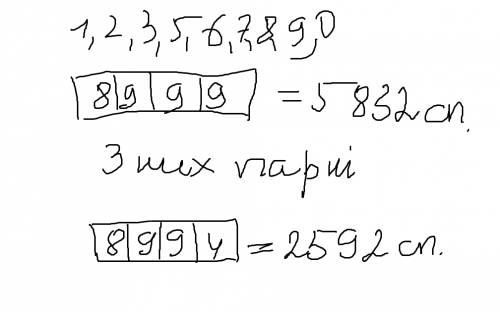 1, 2, 3, 5, 6, 7, 8, 9, 0
8 9 9 9 = 5832 сп.
З них парні
8 9 9 4 = 2592 сп.